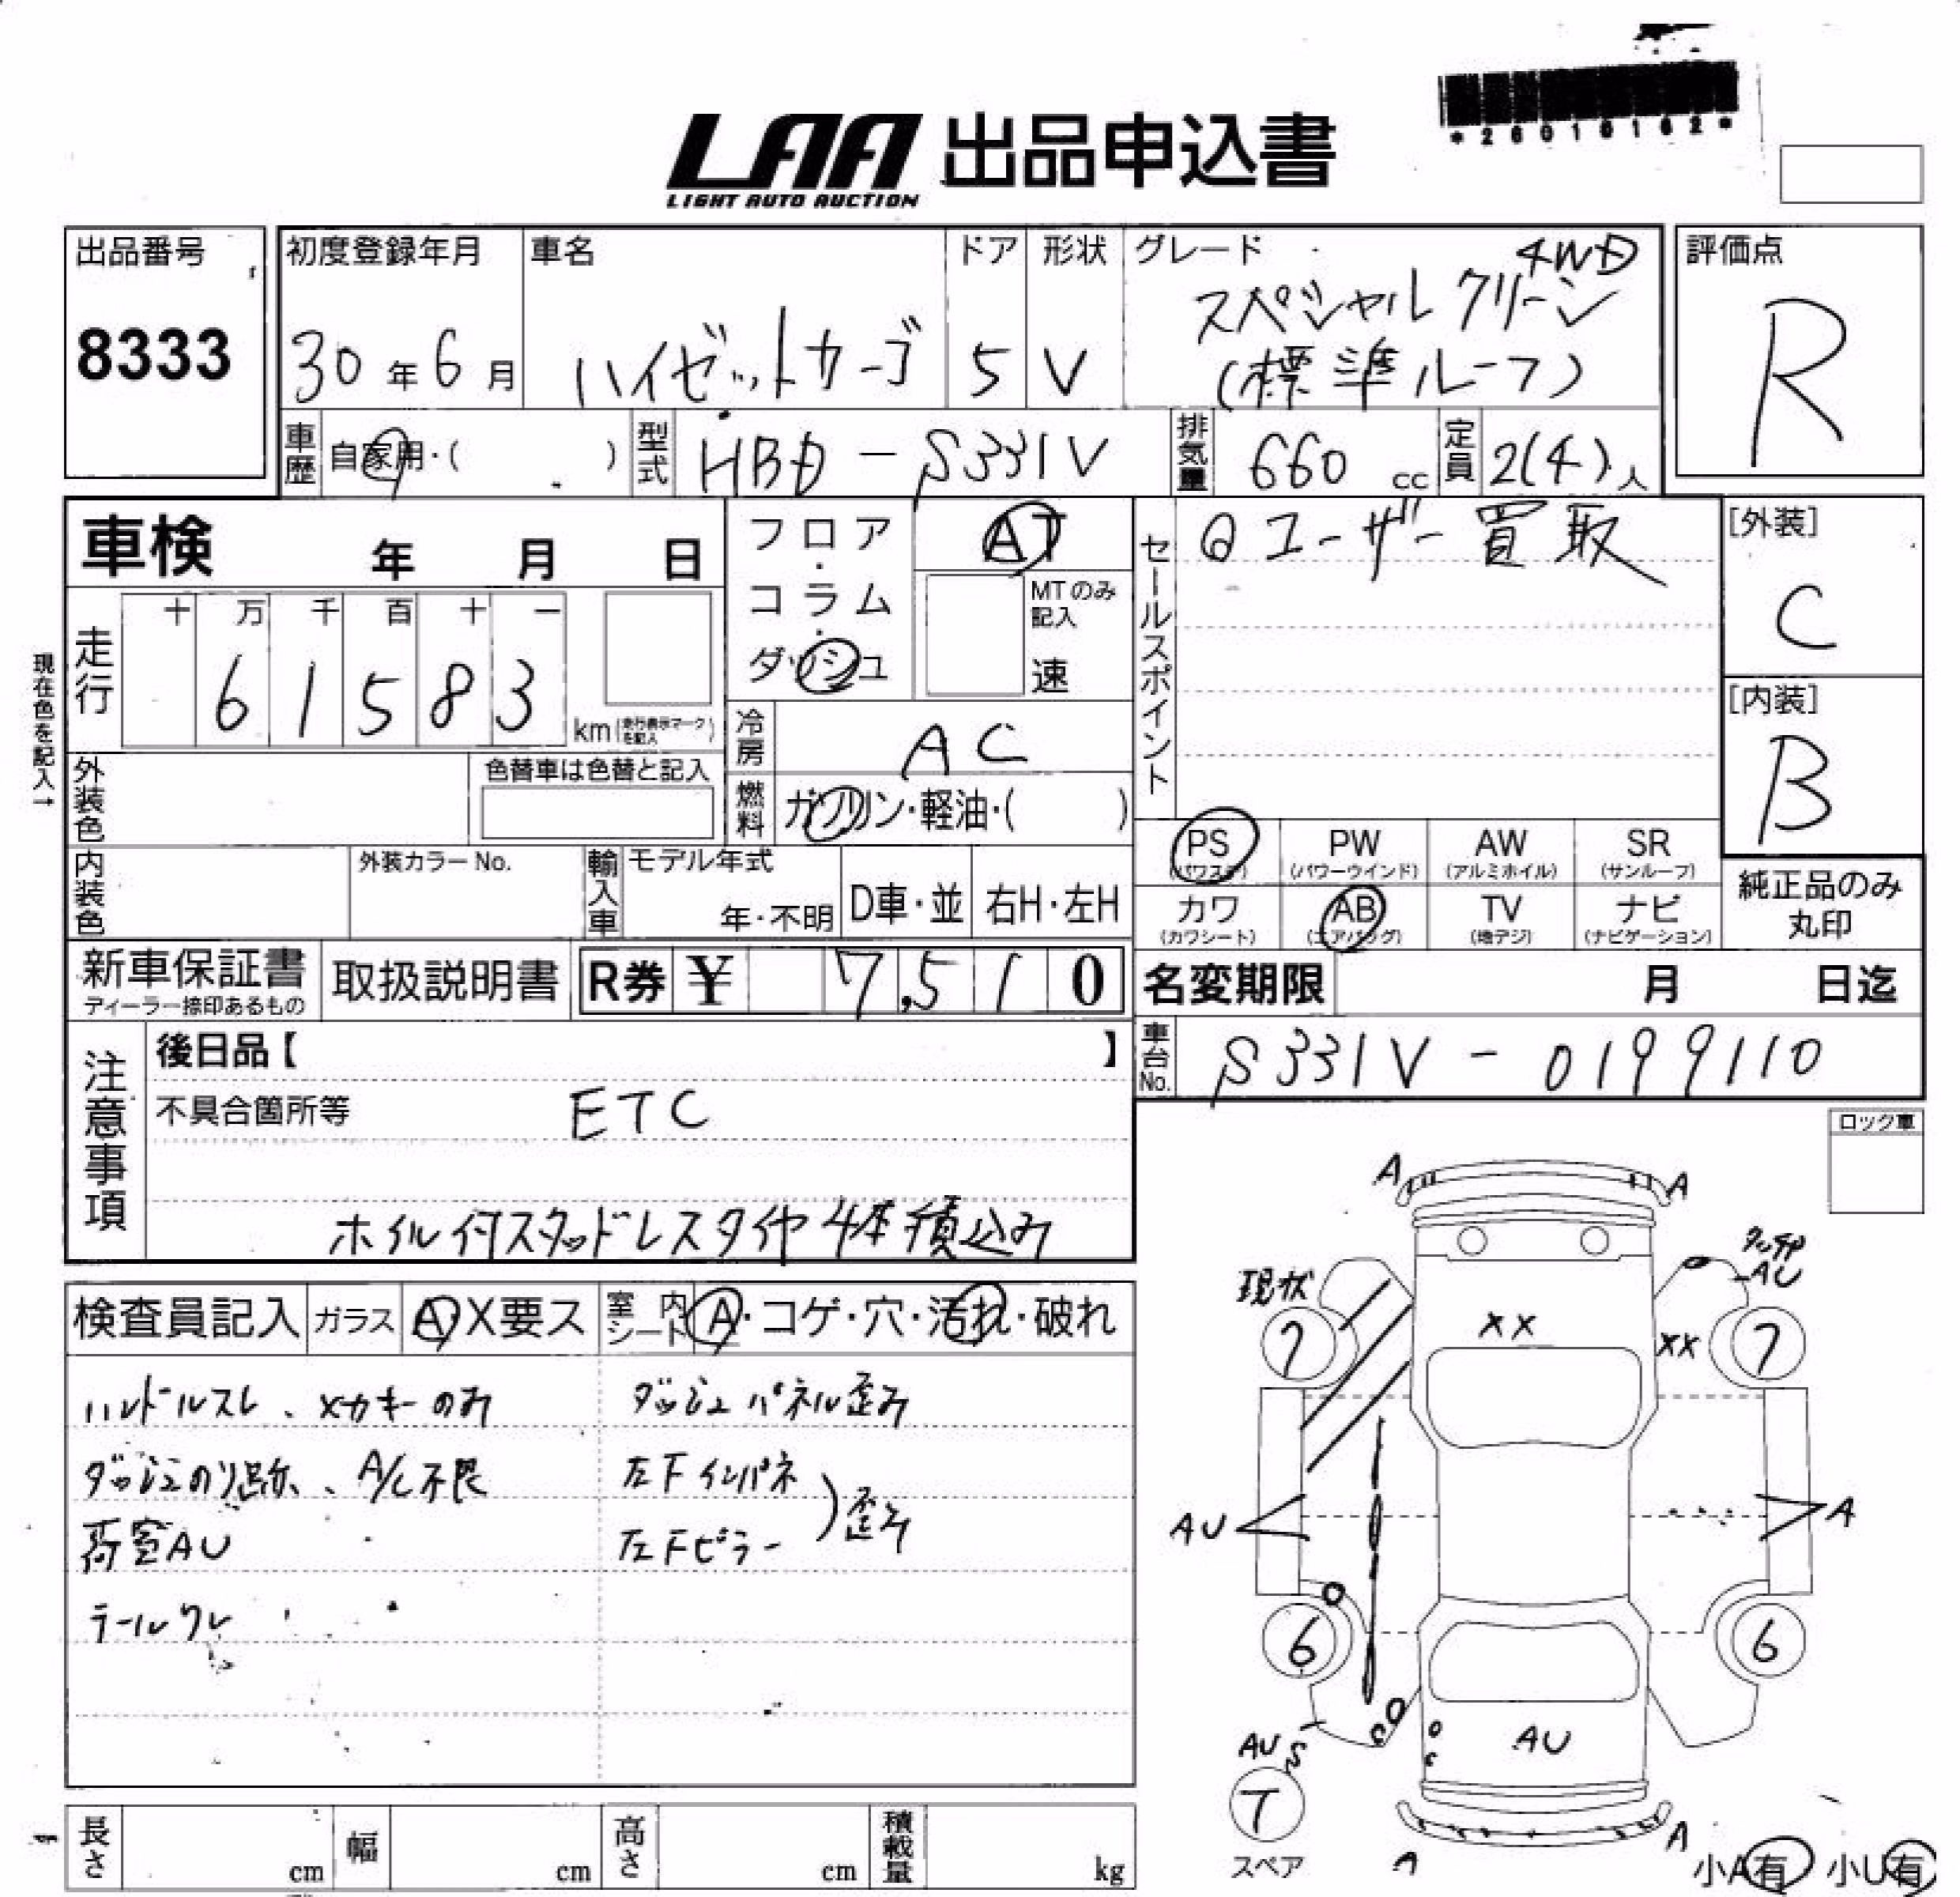 *26010162*
LAA 出品申込書
LIGHT AUTO AUCTION
出品番号
8333
初度登録年月
30年6月
車名
ハイゼットカーゴ
ドア
5
形状
V
グレード
4WD
スペシャルクリーン
(標準ルーフ)
評価点
R
車歴
自家用・( )
型式
HBD-S331V
排気量
660 cc
定員
2(4)人
車検 年 月 日
走行
十 万 千 百 十 一
6 1 5 8 3
km(走行表示マークを記入)
現在色を記入→
フロア・コラム・ダッシュ
AT
MTのみ記入
速
冷房
AC
燃料
ガソリン・軽油・( )
外装色
色替車は色替と記入
内装色
外装カラーNo.
輸入車
モデル年式
年・不明
D車・並
右H・左H
セールスポイント
ユーザー買取
[外装]
C
[内装]
B
PS
(パワステ)
PW
(パワーウインド)
AW
(アルミホイル)
SR
(サンルーフ)
カワ
(カワシート)
AB
(エアバッグ)
TV
(地デジ)
ナビ
(ナビゲーション)
純正品のみ
丸印
新車保証書
ディーラー捺印あるもの
取扱説明書
R券 ¥ 7,510
名変期限 月 日迄
車台No.
S331V-0199110
注意事項
後日品【 】
不具合箇所等
ETC
ホイル付スタッドレスタイヤ4本積込み
ロック車
検査員記入
ガラス
A X要ス
室内シート
A・コゲ・穴・汚れ・破れ
ハンドルスレ、メカキーのみ
A/C不良
荷室AU
テールワレ
ダッシュパネル歪み
左Fインパネ
左Fピラー
歪み
A
A
現状
AU
7
7
XX
XX
AU
A
6
6
AU
S
AU
T
スペア
A
A
小A有 小U有
長さ
cm
幅
cm
高さ
cm
積載量
kg